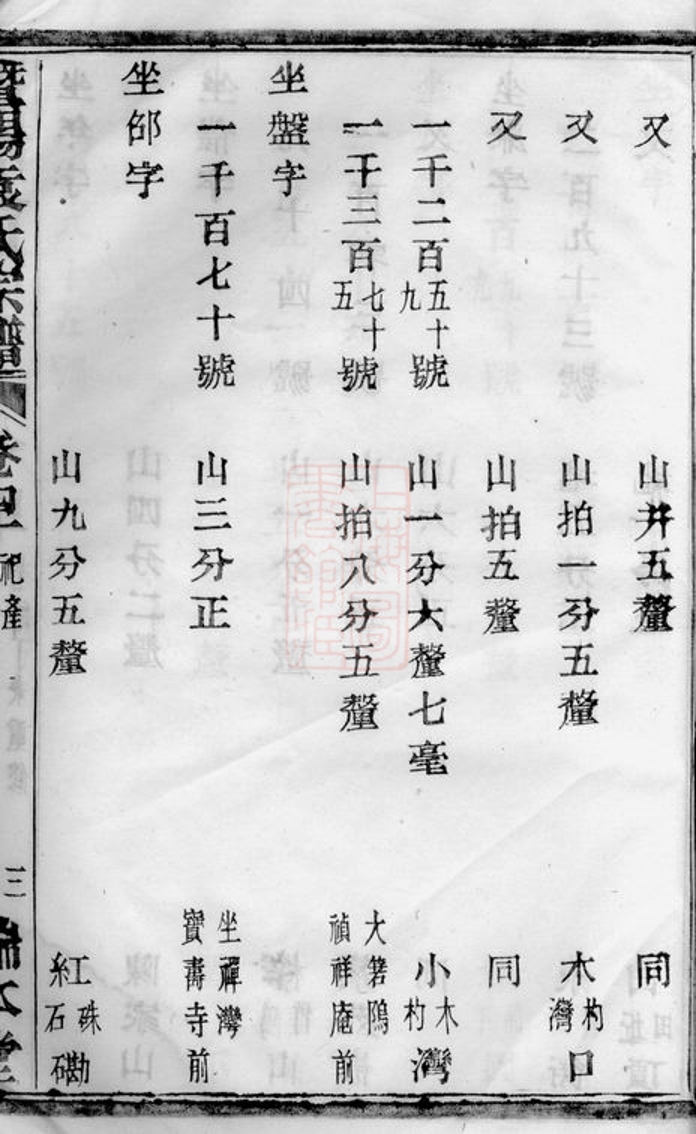 又 山井五釐 同
又 山拍一分五釐 木杓灣口
又 山拍五釐 同
一千二百五十九號 山一分六釐七毫 小木杓灣
一千三百七十五號 山拍八分五釐 大箬隝禎祥庵前
坐盤字
一千百七十號 山三分正 坐禪灣寶壽寺前
坐邰字
山九分五釐 紅硃石磡
暨陽 氏宗譜 卷四 祀產 三 堂